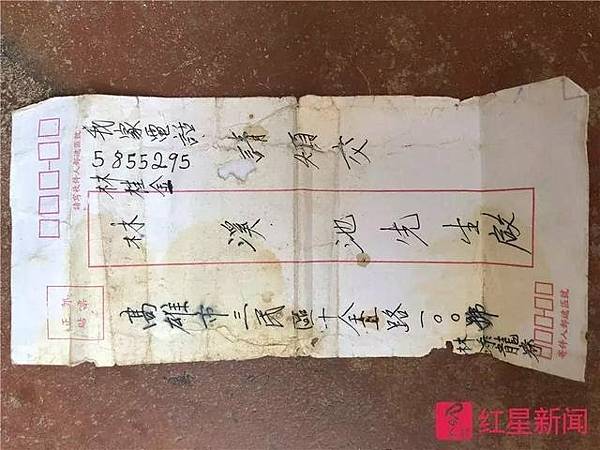 我家電話
5855295
林桂金
請煩交
林溪池先生啟
高雄市三民區十全路一〇〇號
林溪龍寄
請寫收件人郵遞區號
寄件人郵遞區號
红星新闻